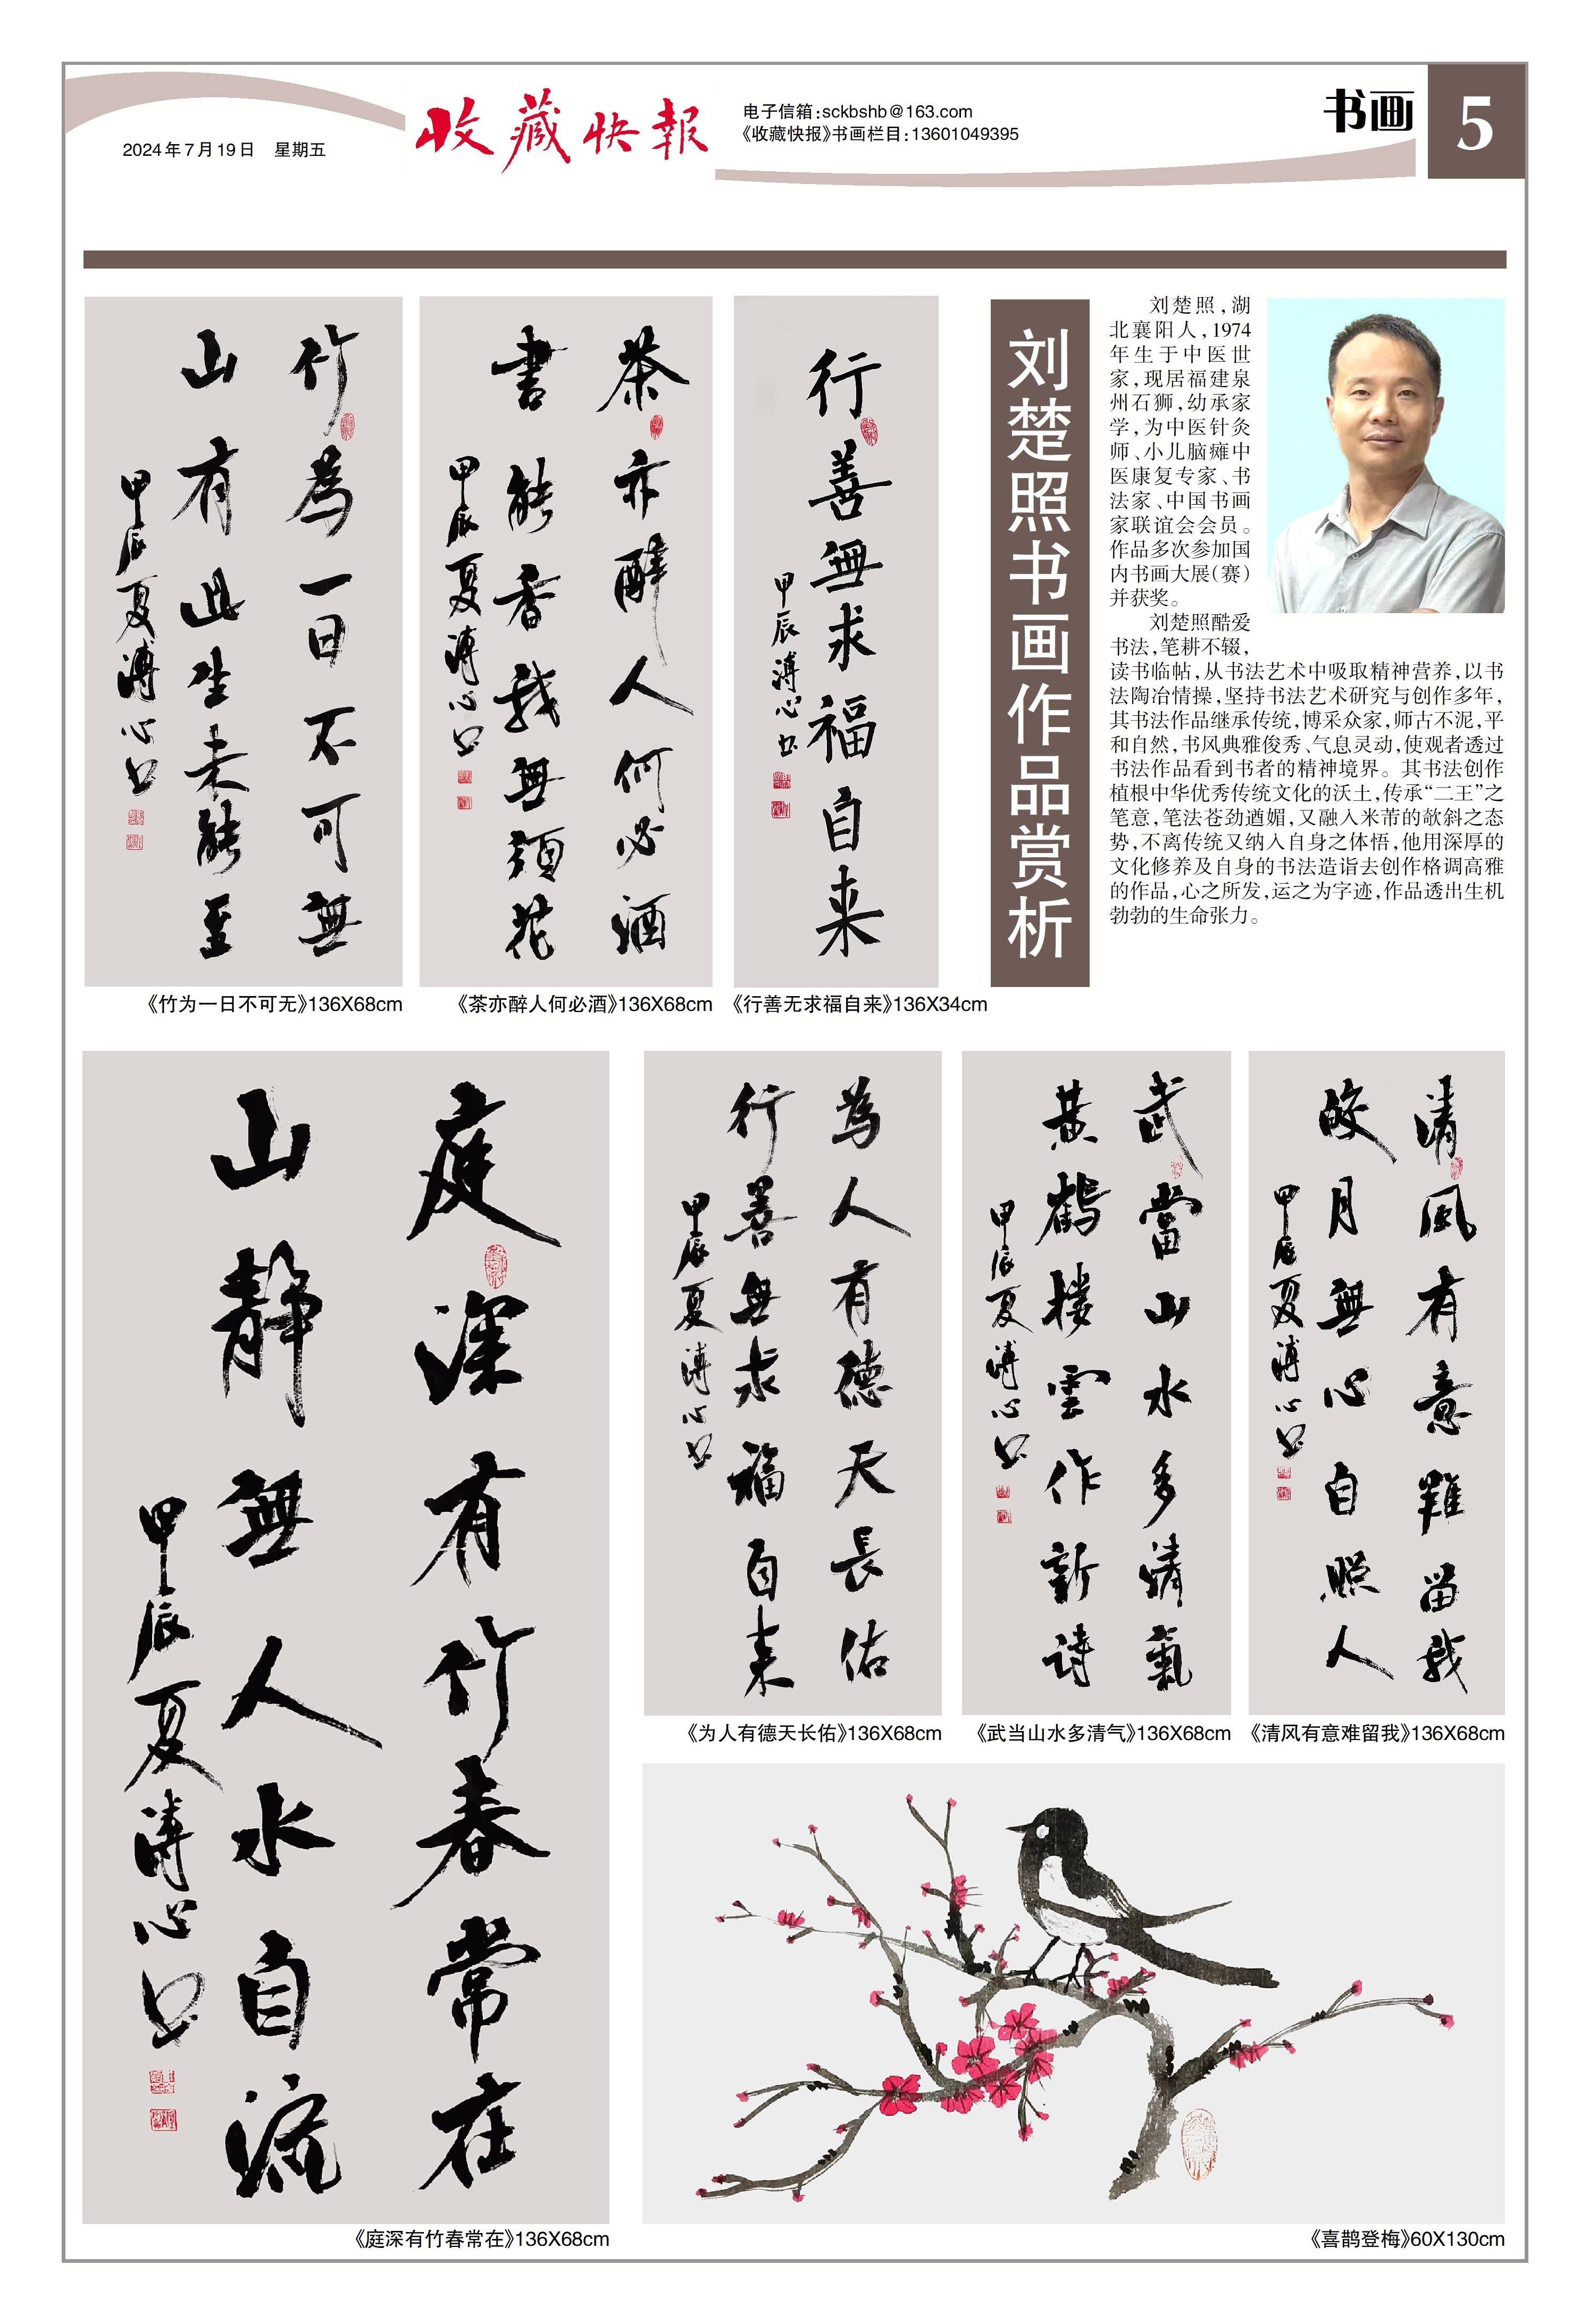 2024年7月19日 星期五
收藏快報
电子信箱:sckbshb@163.com
《收藏快报》书画栏目:13601049395
书画
5
刘楚照书画作品赏析
刘楚照,湖
北襄阳人,1974
年生于中医世
家,现居福建泉
州石狮,幼承家
学,为中医针灸
师、小儿脑瘫中
医康复专家、书
法家、中国书画
家联谊会会员。
作品多次参加国
内书画大展(赛)
并获奖。
刘楚照酷爱
书法,笔耕不辍,
读书临帖,从书法艺术中吸取精神营养,以书
法陶冶情操,坚持书法艺术研究与创作多年,
其书法作品继承传统,博采众家,师古不泥,平
和自然,书风典雅俊秀、气息灵动,使观者透过
书法作品看到书者的精神境界。其书法创作
植根中华优秀传统文化的沃土,传承“二王”之
笔意,笔法苍劲遒媚,又融入米芾的欹斜之态
势,不离传统又纳入自身之体悟,他用深厚的
文化修养及自身的书法造诣去创作格调高雅
的作品,心之所发,运之为字迹,作品透出生机
勃勃的生命张力。
行善無求福自来
甲辰溥心书
《行善无求福自来》136X34cm
茶亦醉人何必酒
書能香我無須花
甲辰夏溥心书
《茶亦醉人何必酒》136X68cm
竹為一日不可無
山有此生未能至
甲辰夏溥心书
《竹为一日不可无》136X68cm
清風有意難留我
皎月無心自照人
甲辰夏溥心书
《清风有意难留我》136X68cm
武當山水多清氣
黄鶴楼雲作新诗
甲辰夏溥心书
《武当山水多清气》136X68cm
為人有德天長佑
行善無求福自来
甲辰夏溥心书
《为人有德天长佑》136X68cm
庭深有竹春常在
山静無人水自流
甲辰夏溥心书
《庭深有竹春常在》136X68cm
《喜鹊登梅》60X130cm